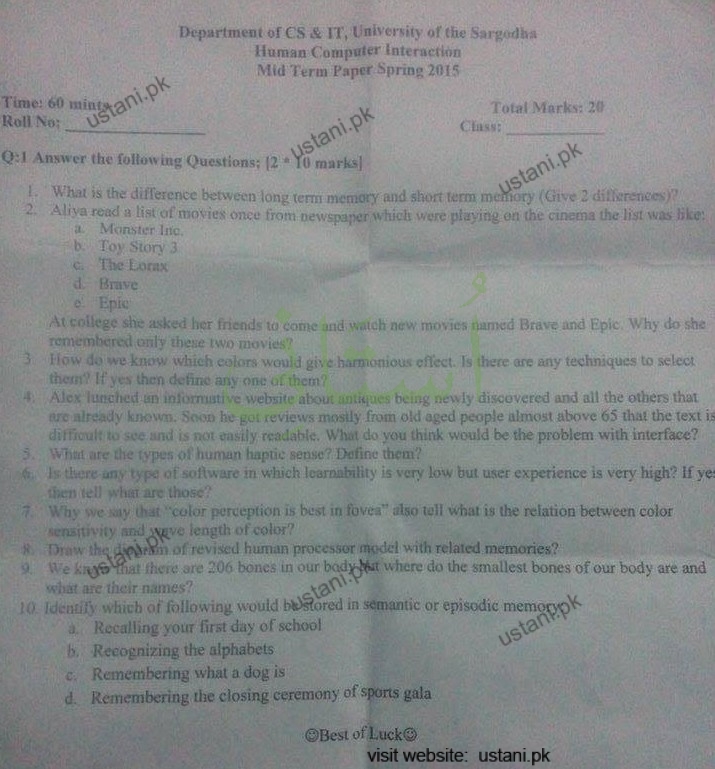 Department of CS & IT, University of the Sargodha
Human Computer Interaction
Mid Term Paper Spring 2015
Time: 60 mints
Total Marks: 20
Roll No:
Class:
Q:1 Answer the following Questions; [2 * 10 marks]
1. What is the difference between long term memory and short term memory (Give 2 differences)?
2. Aliya read a list of movies once from newspaper which were playing on the cinema the list was like:
a. Monster Inc.
b. Toy Story 3
c. The Lorax
d. Brave
e. Epic
At college she asked her friends to come and watch new movies named Brave and Epic. Why do she
remembered only these two movies?
3. How do we know which colors would give harmonious effect. Is there are any techniques to select
them? If yes then define any one of them?
4. Alex lunched an informative website about antiques being newly discovered and all the others that
are already known. Soon he got reviews mostly from old aged people almost above 65 that the text is
difficult to see and is not easily readable. What do you think would be the problem with interface?
5. What are the types of human haptic sense? Define them?
6. Is there any type of software in which learnability is very low but user experience is very high? If yes
then tell what are those?
7. Why we say that "color perception is best in fovea" also tell what is the relation between color
sensitivity and wave length of color?
8. Draw the diagram of revised human processor model with related memories?
9. We know that there are 206 bones in our body but where do the smallest bones of our body are and
what are their names?
10. Identify which of following would be stored in semantic or episodic memory.
a. Recalling your first day of school
b. Recognizing the alphabets
c. Remembering what a dog is
d. Remembering the closing ceremony of sports gala
☺Best of Luck☺
visit website: ustani.pk
ustani.pk
ustani.pk
ustani.pk
ustani.pk
ustani.pk
ustani.pk